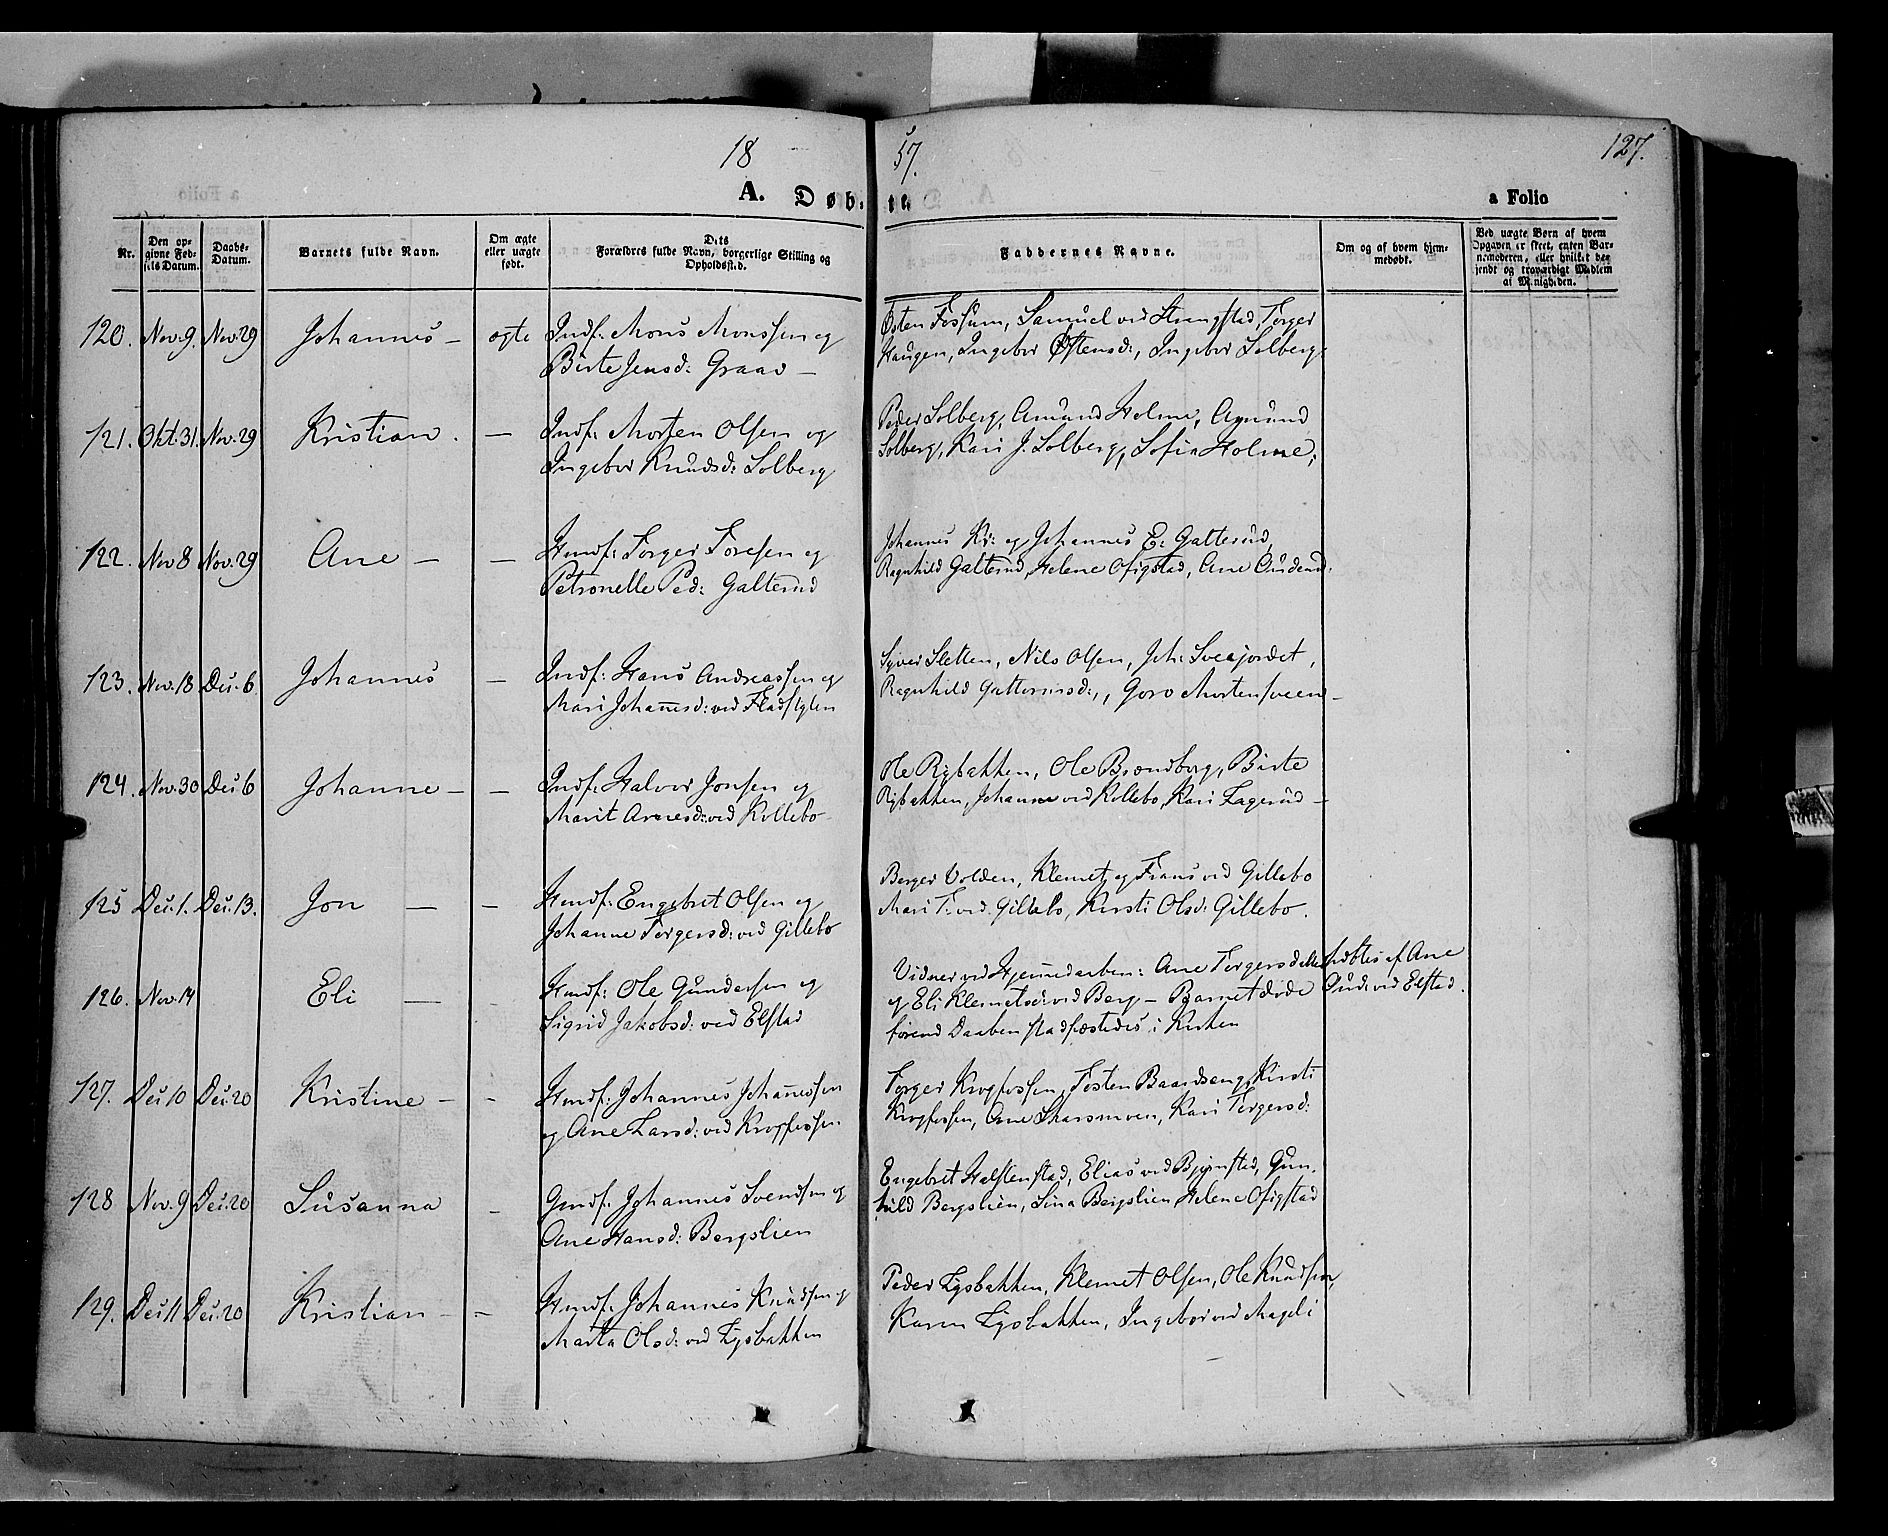 18 57.
127.
A. Døbte. a Folio
Nr.
Den opgivne Fødsels Datum.
Daabs-Datum.
Barnets fulde Navn.
Om ægte eller uægte født.
Dets Forældres fulde Navn, borgerlige Stilling og Opholdssted.
Faddernes Navne.
Om og af hvem hjemmedøbt.
Ved uægte Børn af hvem Opgaven er skeet, enten Barnemoderen, eller hvilket bekjendt og troværdigt Medlem af Menigheden.
120. Nov. 9. Nov. 29 Johannes – ægte Indf: Mons Monssen og Østen Fossum, Samuel ved Strangstad, Torger
Birte Jensd: Graav – Haugen, Ingebor Østensd:, Ingebor Solberg;
121. Okt: 31. Nov: 29 Kristian. – Indf: Morten Olsen og Peder Solberg, Amund Holme, Amund
Ingebor Knudsd: Solberg Solberg, Kari J. Solberg, Sofia Holme;
122. Nov 8 Nov. 29 Ane – – Husmf: Torger Toresen og Johannes Kr: og Johannes E: Galterud,
Petronelle Ped: Galterud Ragnhild Galterud, Helene Ofigstad, Ane
123. Nov. 18 Dec. 6 Johannes – Indf: Hans Andreassen og Syver Sletten, Nils Olsen, Joh: Sveajordet,
Mari Johannesd: ved Fladstylen Ragnhild Guttormsd:, Goro Mortensveen –
124. Nov. 30 Dec 6 Johanne – – Indf: Halvor Jonsen og Ole Rybakken, Ole Brondborg, Birte
Marit Arnesd: ved Kollebo Rybakken, Johanne ved Kollebo, Kari Fagerud –
125 Dec. 1. Dec. 13. Jon – – Husmf: Engebret Olsen og Berger Volden, Klemet og Frans ved Gillebo
Johanne Torgersd: ved Gillebo Mari T: ved Gillebo, Kirsti Olsd: Gillebo.
126. Nov. 14 Eli – – Husmf: Ole Gundersen og Vidner ved Hjemmedaaben: Ane Torgersd døbtes af Ane
Sigrid Jakobsd: ved Elstad og Eli Klemetsd: ved Berg – Barnet døde Gud: ved Elstad.
førend Daaben stadfæstedes i Kirken
127. Dec 10 Dec. 20 Kristine – – Husmf: Johannes Johannessen Torger Krogfossen, Tosten Baardseng, Kirsti
og Ane Larsd: ved Krogfossen Krogfossen, Ane Skarsmoen, Kari Torgersd:
128 Nov. 9 Dec. 20 Susanna – Gmdf: Johannes Svendsen og Engebret Halstenstad, Elias ved Bjørnstad, Gun-
Ane Hansd: Bergslien hild Bergslien, Sina Bergslien, Helene Ofigstad
129. Dec. 11 Dec. 20 Kristian – – Husmf: Johannes Knudsen og Peder Lysbakken, Klemet Olsen, Ole Knudsen
Marta Olsd: ved Lysbakken Karen Lysbakken, Ingebor ved Mageli